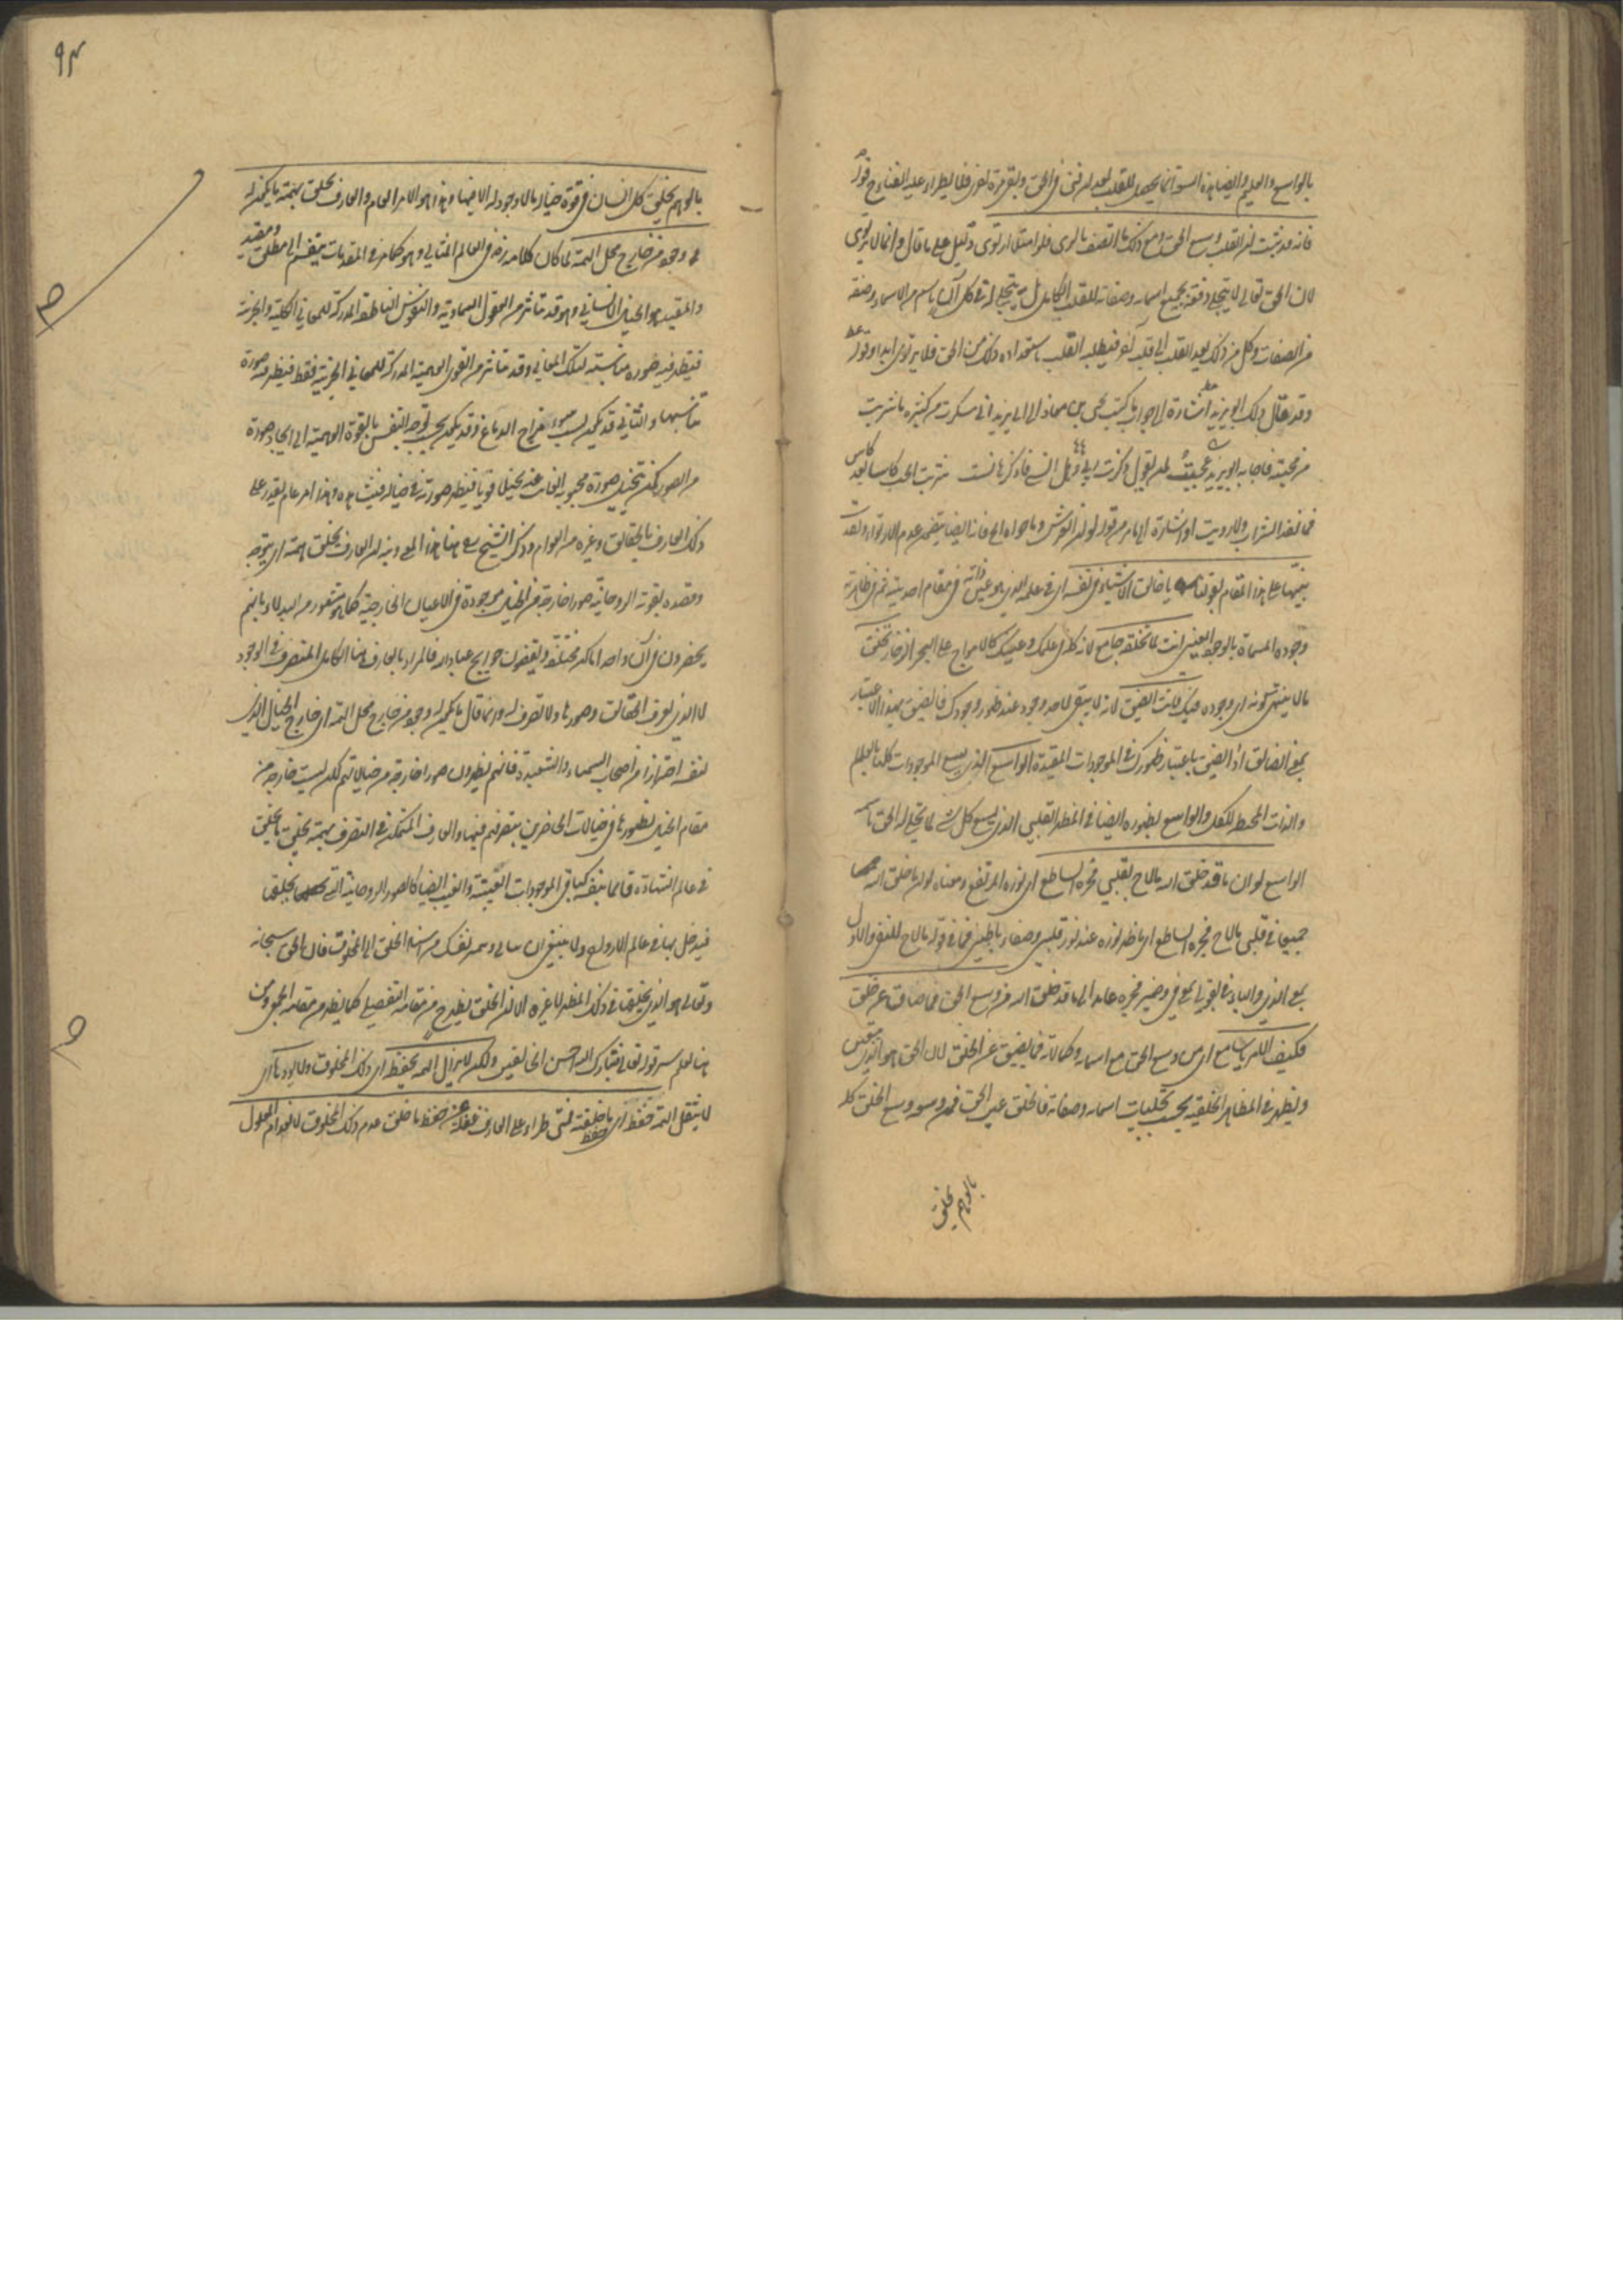 بالواسع والعليم وايضا هذه السعة انما يحصل للقلب بعد ان فنى في الحق وبقى به مرة اخرى فلا يطراء عليه الفناء ح قوله
فانه قد ثبت ان القلب وسع الحق ومع ذلك ما اتصف بالرى فلو امتلاء ارتوى دليل على ما قال وانما لا يرتوى
لان الحق تعالى لا يتجلى دفعة بجميع اسمائه وصفاته للقلب الكامل بل يتجلى له في كل آن باسم من الاسماء وصفة
من الصفات وكل من ذلك يعد القلب الى تجل آخر فيطلبه القلب باستعداده ذلك من الحق فلا يرتوى ابدا وقوله
وقد قال ذلك ابو يزيد اشارة الى جواب ما كتب يحيى بن معاذ الى ابى يزيد انى سكرت من كثرة ما شربت
من محبته فاجابه ابو يزيد عجبت لمن يقول ذكرت ربى وهل انسى فاذكر ما نسيت شربت الحب كاسا بعد كاس
فما نفد الشراب ولا رويت او اشارة الى ما مر من قوله لو ان العرش وما حواه الخ فانه ايضا يتضمن عدم الارتواء ولقد
نبهنا على هذا المقام بقولنا يا خالق الاشياء في نفسه اى في علمه الذى هو عين ذاته في مقام احديته ثم في مظاهر
وجوده المسماة بالوجود العينى انت لما تخلقه جامع لانه كله في علمك وعينك كالامواج على البحر الزخار تخلق
ما لا ينتهى كونه اى وجوده فيك فانت الضيق لانه لا يبقى لاحد وجود عند ظهور وجودك فالضيق بهذا الاعتبار
بمعنى الضائق اذ الضيق باعتبار ظهورك في الموجودات المقيدة الواسع الذى يسع الموجودات كلها بالعلم
والذات المحيط للكل والواسع بظهوره ايضا في المظهر القلبى الذى يسع كل شئ لما تجلى له الحق باسمه
الواسع لو ان ما قد خلق الله ما لاح بقلبى فجره الساطع اى نوره المرتفع ومعناه لو ان ما خلق الله
جميعا في قلبى ما لاح فجره الساطع اى ما ظهر نوره عند نور قلبى وصفاء باطنى فما في قوله ما لاح للنفى والاول
بمعنى الذى والباء في بقلبى بمعنى في وضمير فجره عائد الى ما قد خلق الله من وسع الحق فما ضاق عن خلق
فكيف الامر يا سامع اى من وسع الحق مع اسمائه وكمالاته فما يضيق عن الخلق لان الحق هو الذى يتعين
ويظهر في المظاهر الخلقية بحسب تجليات اسمائه وصفاته فالخلق عين الحق فمن وسعه وسع الخلق كله
بالوهم يخلق
٩٣
بالوهم يخلق كل انسان في قوة خياله ما لا وجود له الا فيها وهذا هو الامر العام والعارف يخلق بهمته ما يكون له
وجود من خارج محل الهمة لما كان كلامه رض في العالم المثالى وهو كما مر في المقدمات ينقسم الى مطلق ومقيد
والمقيد هو الخيال الانسانى وهو قد يتاثر من العقول السماوية والنفوس الناطقة المدركة للمعانى الكلية والجزئية
فيظهر فيه صورة مناسبة لتلك المعانى وقد يتاثر من القوى الوهمية المدركة للمعانى الجزئية فقط فيظهر فيه صورة
تناسبها والثانى قد يكون بسبب سوء مزاج الدماغ وقد يكون بحسب توجه النفس بالقوة الوهمية الى ايجاد صورة
من الصور كمن يتخيل صورة محبوبه الغائب عنه تخيلا قويا فيظهر صورته في خياله فيشاهده وهذا امر عام يقدر على
ذلك العارف بالحقائق وغيره من العوام وذكر الشيخ رض هنا هذا المعنى ونبه ان العارف يخلق بهمته اى بتوجهه
وقصده بقوته الروحانية صورا خارجة من الخيال موجودة في الاعيان الخارجية كما هو مشهور من البدلاء بانهم
يحضرون في آن واحد اماكن مختلفة ويقضون حوائج عباد الله فالمراد بالعارف هنا الكامل المتصرف في الوجود
لا الذى يعرف الحقائق وصورها ولا تصرف له وانما قال ما يكون له وجود من خارج محل الهمة اى خارج الخيال الذى
لنفسه احترازا من اصحاب السيمياء والشعبذة فانهم يظهرون صورا خارجة من خيالاتهم لكن ليست خارجة من
مقام الخيال لظهورها في خيالات الحاضرين بتصرفهم فيها والعارف المتمكن في التصرف بهمته يخلق ما يخلق
في عالم الشهادة قائما بنفسه كباقى الموجودات العينية والغيب ايضا كالصور الروحانية التى يخلقها
فيدخل بها في عالم الارواح ولا ينبغى ان تسأل وتشمئز نفسك من اسناد الخلق الى المخلوق فان الحق سبحانه
وتعالى هو الذى يخلقها في ذلك المظهر لا غيره الا ان الخلق يظهر ح من مقامه التفصيلى كما يظهر من مقامه الجمعى ومن
هنا يعلم سر قوله تعالى فتبارك الله احسن الخالقين ولكن لا يزال الهمة يحفظه اى ذلك المخلوق ولا يؤدها اى
لا يثقل الهمة حفظه اى حفظ ما خلقته فمتى طراء على العارف غفلة عن حفظ ما خلق عدم ذلك المخلوق لانعدام المعلول